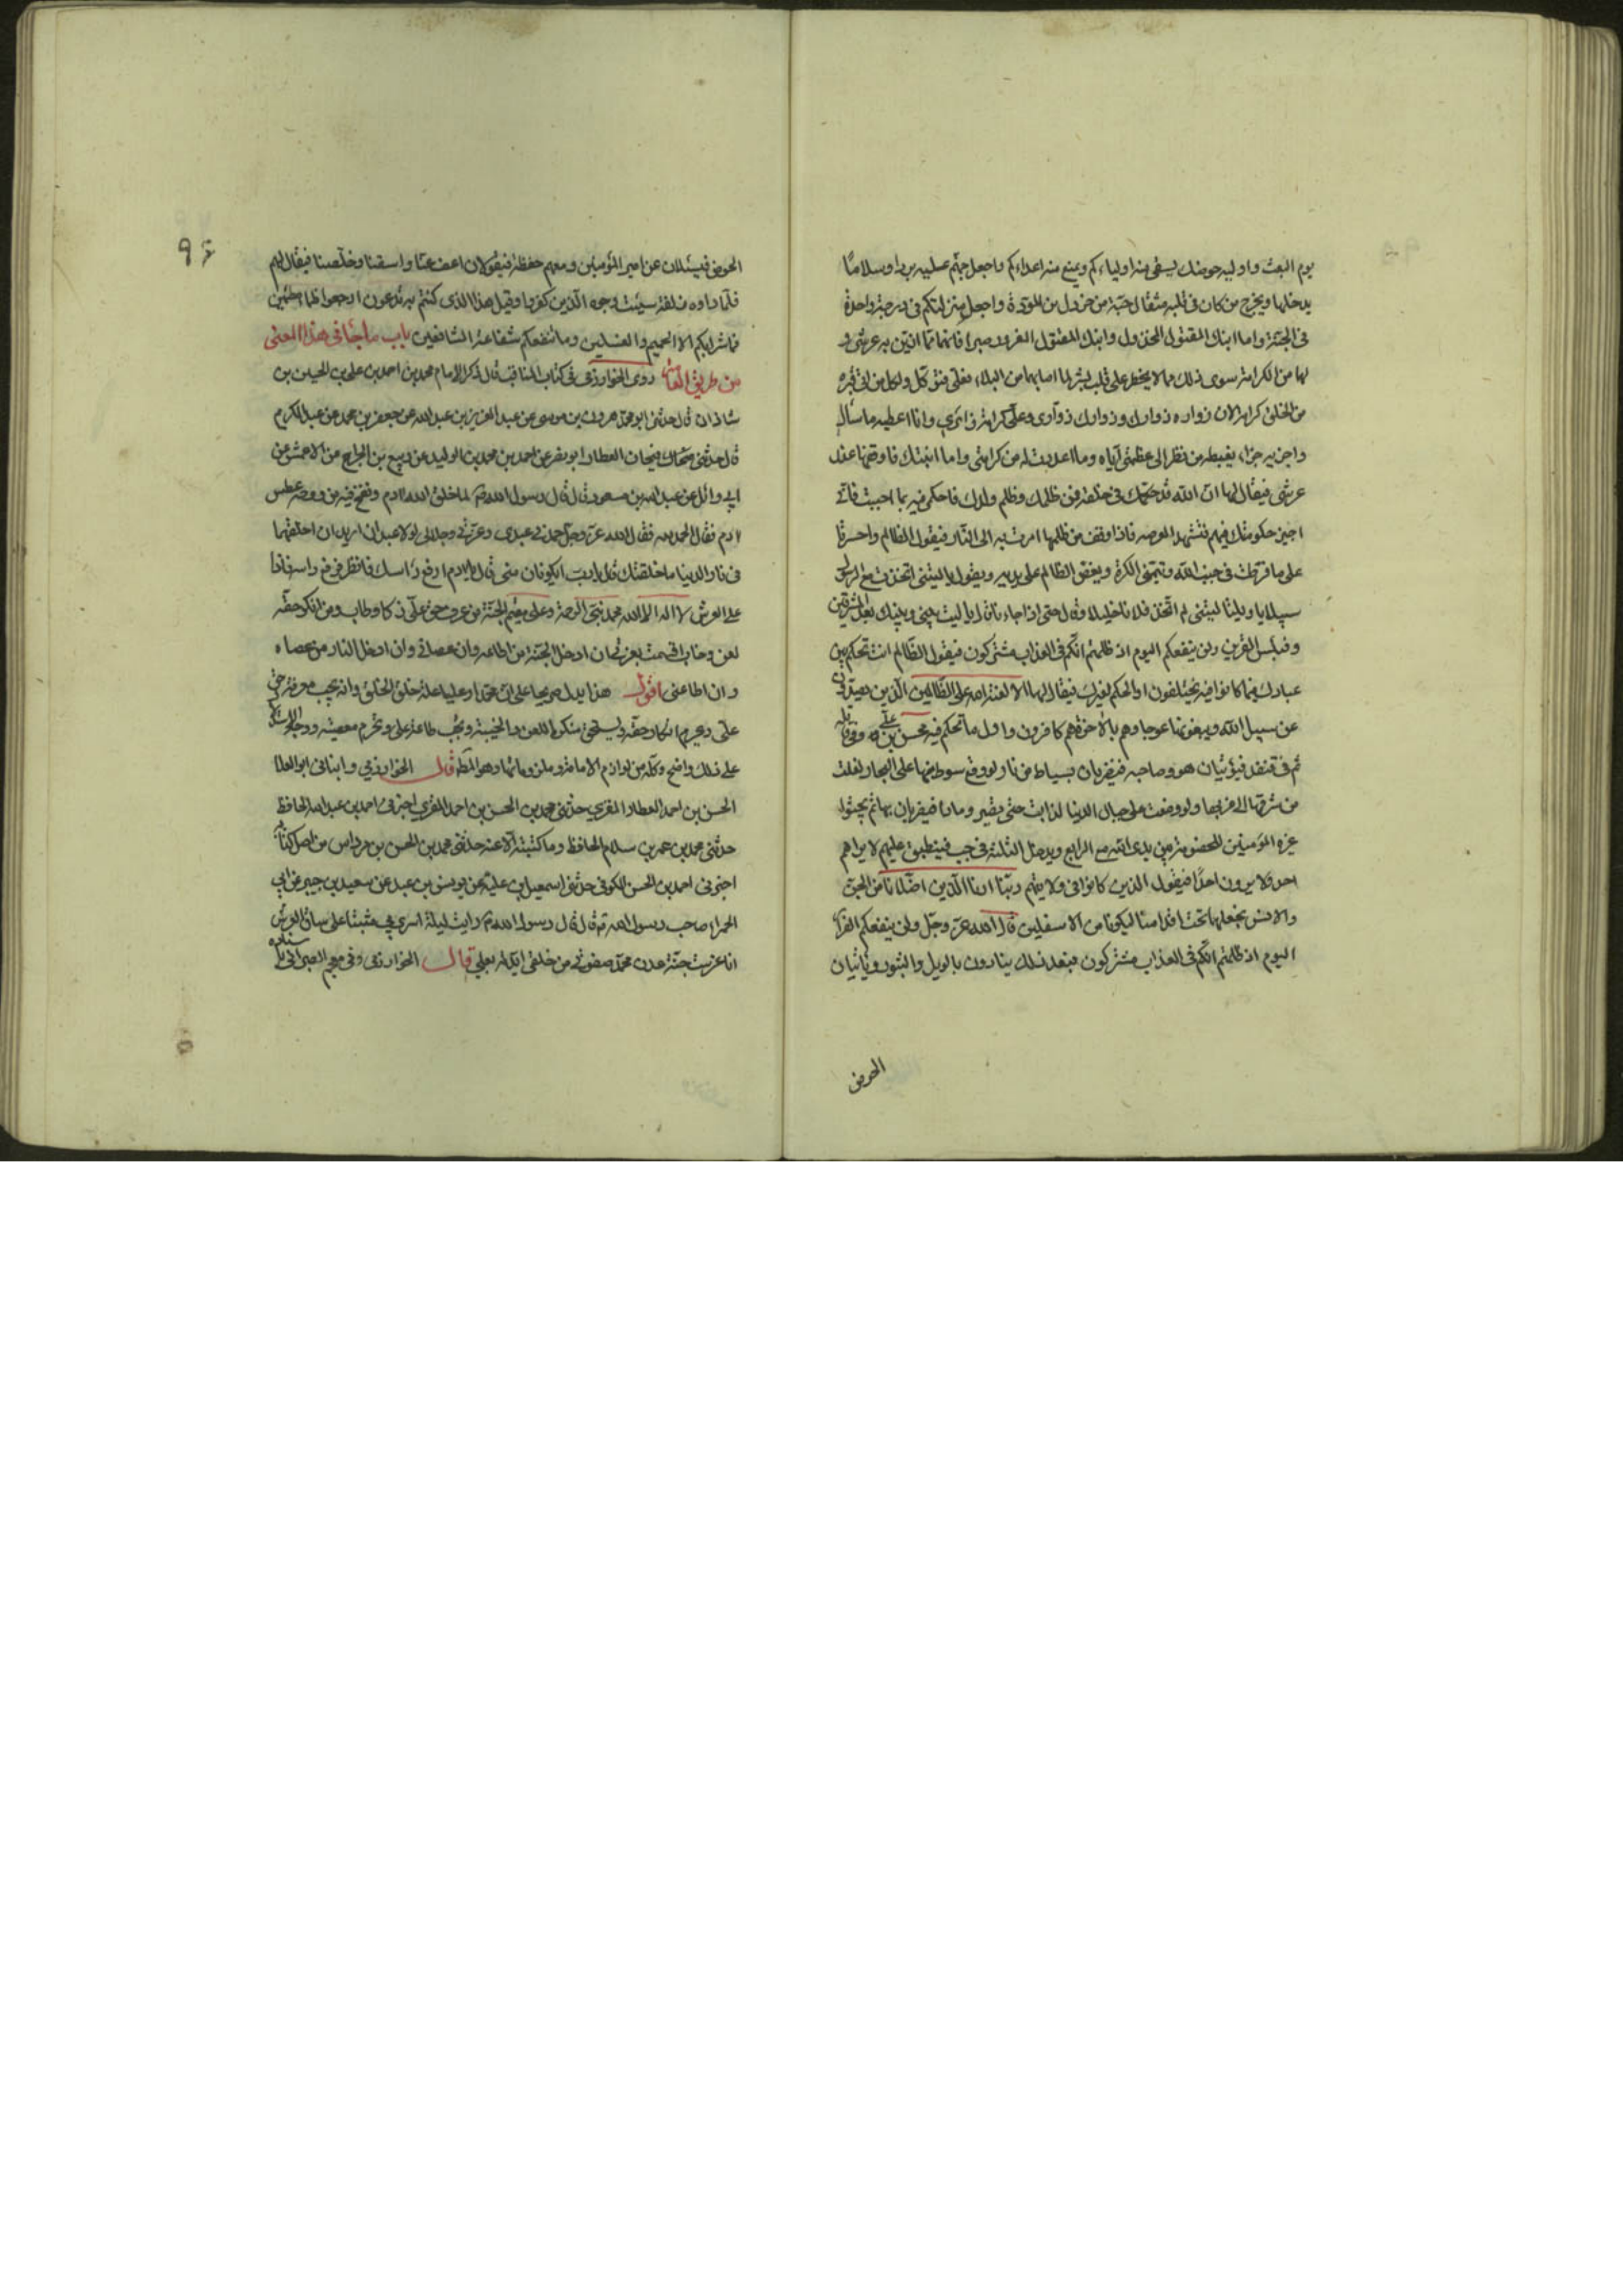 يوم البعث واوليه حوضك ليسقى منه اولياءكم ويمنع منه اعداءكم واجعل جهنم عليه بردا وسلاما
يدخلها ويخرج من كان فى قلبه مثقال حبة من خردل من المودة واجعل منزلتكم فى درجة واحدة
فى الجنة واما ابنك المقتول المخذول وابنك المقتول المغرور صبرا فانهما مما ازين به عرشى و
لهما من الكرامة سوى ذلك مما لا يخطر على قلب بشر لما اصابهما من البلاء فعلى فتوكل ولكل من اتى قبره
من الخلق كرامة لان زواره زوارك وزوارك زوارى وعلى كرامة زائرى وانا اعطيه ما سأل
واجزيه جزاء يغبطه من نظر الى عظمتى اياه وما اعددت له من كرامتى واما ابنتك فاوقفها عند
عرشى فيقال لها ان الله قد حكمك فى خلقه فمن ظلمك وظلم ولدك فاحكمى فيه بما احببت فانى
اجيز حكومتك فيهم فتشهد العرصه فاذا وقف من ظلمها امرت به الى النار فيقول الظالم واحسرتا
على ما فرطت فى جنب الله ويتمنى الكرة ويعض الظالم على يديه ويقول يا ليتنى اتخذت مع الرسول
سبيلا يا ويلتا ليتنى لم اتخذ فلانا خليلا وقال حتى اذا جاءنا قال يا ليت بينى وبينك بعد المشرقين
وفبئس القرين ولن ينفعكم اليوم اذ ظلمتم انكم فى العذاب مشتركون فيقول الظالم انت تحكم بين
عبادك فيما كانوا فيه يختلفون او الحكم لغيرك فيقال لهما الا لعنة الله على الظالمين الذين يصدون
عن سبيل الله ويبغونها عوجا وهم بالاخرة هم كافرون واول ما تحكم فيه محسن بن على وفى قاتله
ثم فى قنفذ فيؤتيان هو وصاحبه فيضربان بسياط من نار لو وقع سوط منها على البحار لغلت
من مشرقها الى مغربها ولو وضعت على جبال الدنيا لذابت حتى تصير رمادا فيضربان بها ثم يجثو
المؤمنين للخصومة بين يدى الله مع الرابع ويدخل الثلثة فى جب فيطبق عليهم لا يراهم
احد ولا يرون احدا فيقول الذين كانوا فى ولايتهم ربنا ارنا الذين اضلانا من الجن
والانس نجعلهما تحت اقدامنا ليكونا من الاسفلين قال الله عز وجل ولن ينفعكم
اليوم اذ ظلمتم انكم فى العذاب مشتركون فبعد ذلك ينادون بالويل والثبور وياتيان
الحوض
٩٤
الحوض فيسئلان عن امير المؤمنين ومعهم حفظة فيقولان اعف عنا واسقنا وخلصنا فيقال لهم
فلما راوه زلفة سيئت وجوه الذين كفروا وقيل هذا الذى كنتم به تدعون ارجعوا ظماء مظمئين
فما شرابكم الا الحميم والغسلين وما تنفعكم شفاعة الشافعين باب ما جاء فى هذا المعنى
من طريق العامة روى الخوارزمى فى كتاب المناقب قال ذكر الامام محمد بن احمد بن على بن الحسين بن
شاذان قال حدثنى ابو محمد هرون بن موسى عن عبد العزيز بن عبد الله عن جعفر بن محمد عن عبد الكريم
قال حدثنى فيحان العطار ابو نصر عن احمد بن محمد بن الوليد عن وكيع بن الجراح عن الاعمش عن
ابى وائل عن عبد الله بن مسعود قال قال رسول الله ص لما خلق الله ادم ونفخ فيه من روحه عطس
ادم فقال الحمد لله فقال الله عز وجل حمدنى عبدى وعزتى وجلالى لولا عبدان اريد ان اخلقهما
فى دار الدنيا ما خلقتك قال يا رب ايكونان منى قال نعم يا ادم ارفع راسك فانظر فرفع راسه فاذا
على العرش لا اله الا الله محمد نبى الرحمة وعلى مقيم الجنة من عرف حق على زكا وطاب ومن انكر حقه
لعن وخاب اقسمت بعزتى ان ادخل الجنة من اطاعه وان عصانى وان ادخل النار من عصاه
وان اطاعنى اقول هذا يدل صريحا على ان محمدا وعليا علة خلق الخلق وانه يجب معرفة حق
على ويحرم انكار حقه ويستحق منكره اللعن والخيبة وتجب طاعة على وتحرم معصيته
على ذلك واضح وكله من لوازم الامامة وملزوماتها وهو المط قال الخوارزمى وانبانى ابو العلا
الحسن بن احمد العطار المقرى حدثنى محمد بن الحسن بن احمد المقرى اخبرنى احمد بن عبد الله الحافظ
حدثنى محمد بن عمر بن سلام الحافظ وما كتبته الا عنه حدثنى محمد بن الحسن بن مرداس من اصل كتابه
اخبرنى احمد بن الحسن الكوفى حدثنى اسمعيل بن علية عن يونس بن عبد عن سعيد بن جبير عن ابى
الحمراء صاحب رسول الله ص قال قال رسول الله ص رايت ليلة اسرى بى مثبتا على ساق العرش
انا غرست جنة عدن محمد صفوتى من خلقى ايدته بعلى قال الخوارزمى وفى معجم الطبرانى باسناده